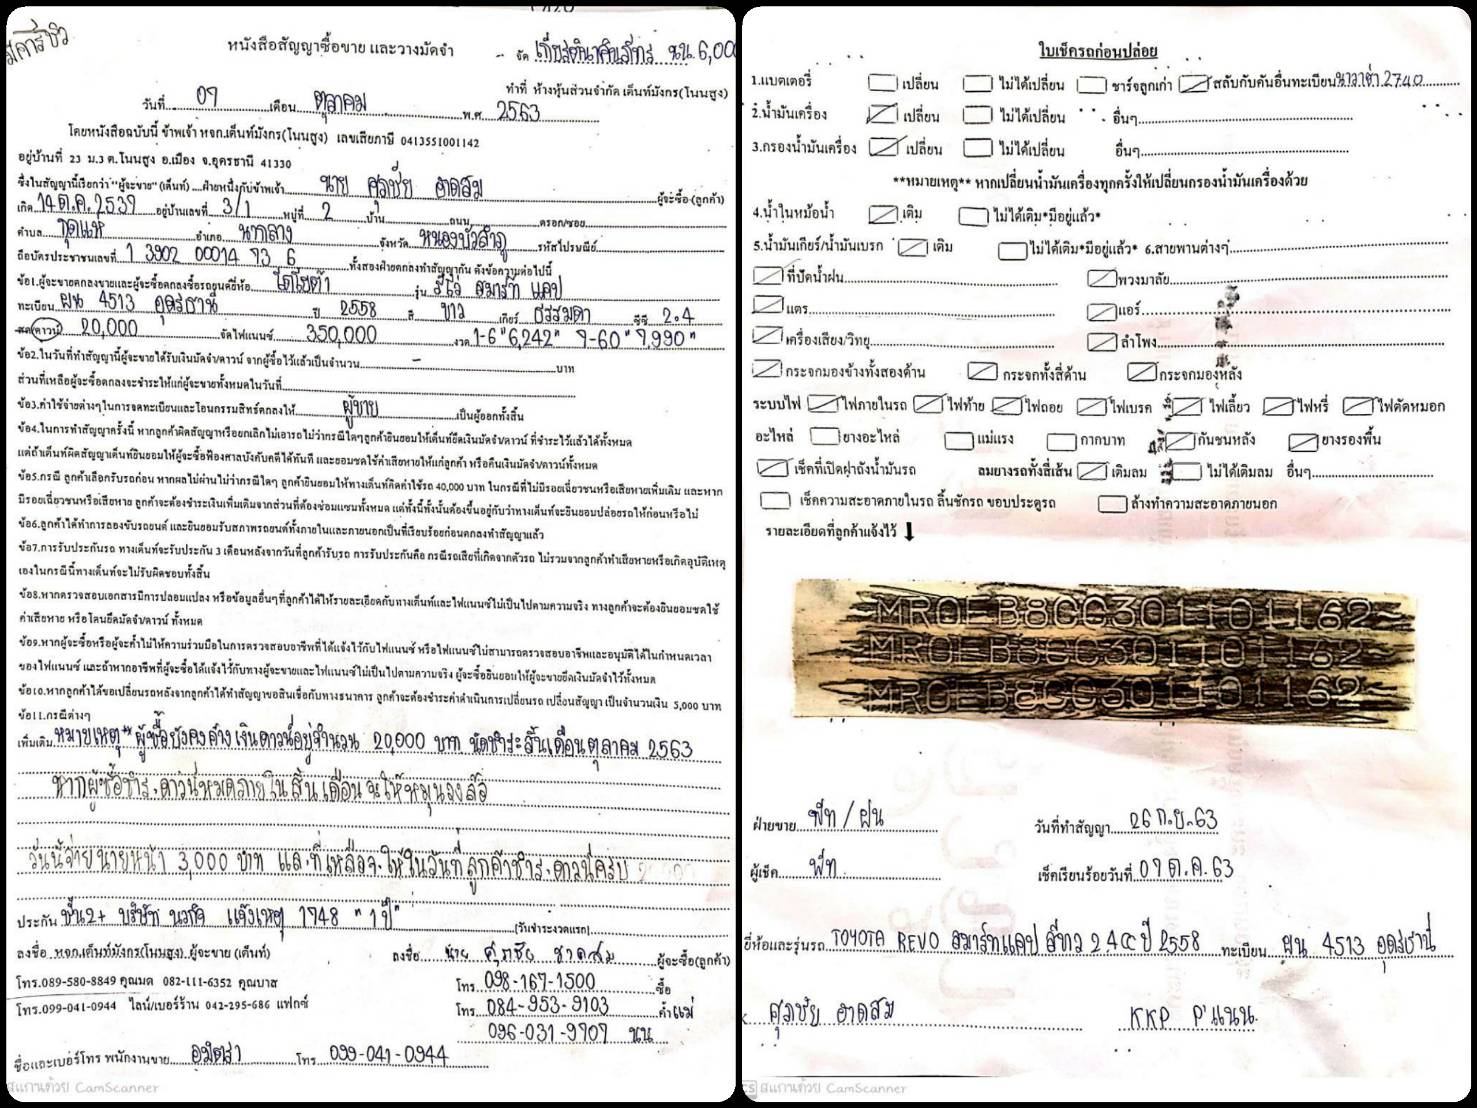 หนังสือสัญญาซื้อขาย และวางมัดจำ
จัด เกียรตินาคินภัทร นน. 6,000
ทำที่ ห้างหุ้นส่วนจำกัด เต็นท์มังกร(โนนสูง)
วันที่ 07 เดือน ตุลาคม พ.ศ. 2563
โดยหนังสือฉบับนี้ ข้าพเจ้า หจก.เต็นท์มังกร(โนนสูง) เลขเสียภาษี 0413551001142
อยู่บ้านที่ 23 ม.3 ต.โนนสูง อ.เมือง จ.อุดรธานี 41330
ซึ่งในสัญญานี้เรียกว่า"ผู้จะขาย"(เต็นท์)....ฝ่ายหนึ่งกับข้าพเจ้า นาย ศุภชัย ฮาดสม ผู้จะซื้อ(ลูกค้า)
เกิด 14 ต.ค. 2539 อยู่บ้านเลขที่ 3/1 หมู่ที่ 2 บ้าน ถนน ตรอก/ซอย
ตำบล กุดแห่ อำเภอ นากลาง จังหวัด หนองบัวลำภู รหัสไปรษณีย์
ถือบัตรประชาชนเลขที่ 1 3902 00014 73 6 ทั้งสองฝ่ายตกลงทำสัญญากัน ดังข้อความต่อไปนี้
ข้อ1.ผู้จะขายตกลงขายและผู้จะซื้อตกลงซื้อรถยนต์ยี่ห้อ โตโยต้า รุ่น รีโว่ สมาร์ท แคป
ทะเบียน ผน 4513 อุดรธานี ปี 2558 สี ขาว เกียร์ ธรรมดา ซีซี 2.4
สด(ดาวน์) 20,000 จัดไฟแนนซ์ 350,000 งวด 1-6 "6,242" 7-60 "7,990"
ข้อ2.ในวันที่ทำสัญญานี้ผู้จะขายได้รับเงินมัดจำ/ดาวน์ จากผู้ซื้อไว้แล้วเป็นจำนวน - บาท
ส่วนที่เหลือผู้จะซื้อตกลงจะชำระให้แก่ผู้จะขายทั้งหมดในวันที่
ข้อ3.ค่าใช้จ่ายต่างๆในการจดทะเบียนและโอนกรรมสิทธิ์ตกลงให้ ผู้ขาย เป็นผู้ออกทั้งสิ้น
ข้อ4.ในการทำสัญญาครั้งนี้ หากลูกค้าผิดสัญญาหรือยกเลิกไม่เอารถไม่ว่ากรณีใดๆลูกค้ายินยอมให้เต็นท์ยึดเงินมัดจำ/ดาวน์ ที่ชำระไว้แล้วได้ทั้งหมด
แต่ถ้าเต็นท์ผิดสัญญาเต็นท์ยินยอมให้ผู้จะซื้อฟ้องศาลบังคับคดีได้ทันที และยอมชดใช้ค่าเสียหายให้แก่ลูกค้า หรือคืนเงินมัดจำ/ดาวน์ทั้งหมด
ข้อ5.กรณี ลูกค้าเลือกรับรถก่อน หากผลไม่ผ่านไม่ว่ากรณีใดๆ ลูกค้ายินยอมให้ทางเต็นท์คิดค่าใช้รถ 40,000 บาท ในกรณีที่ไม่มีรอยเฉี่ยวชนหรือเสียหายเพิ่มเติม และหาก
มีรอยเฉี่ยวชนหรือเสียหาย ลูกค้าจะต้องชำระเงินเพิ่มเติมจากส่วนที่ต้องซ่อมแซมทั้งหมด แต่ทั้งนี้ทั้งนั้นต้องขึ้นอยู่กับว่าทางเต็นท์จะยินยอมปล่อยรถให้ก่อนหรือไม่
ข้อ6.ลูกค้าได้ทำการลองขับรถยนต์ และยินยอมรับสภาพรถยนต์ทั้งภายในและภายนอกเป็นที่เรียบร้อยก่อนตกลงทำสัญญาแล้ว
ข้อ7.การรับประกันรถ ทางเต็นท์จะรับประกัน 3 เดือนหลังจากวันที่ลูกค้ารับรถ การรับประกันคือ กรณีรถเสียที่เกิดจากตัวรถ ไม่รวมจากลูกค้าทำเสียหายหรือเกิดอุบัติเหตุ
เองในกรณีนี้ทางเต็นท์จะไม่รับผิดชอบทั้งสิ้น
ข้อ8.หากตรวจสอบเอกสารมีการปลอมแปลง หรือข้อมูลอื่นๆที่ลูกค้าได้ให้รายละเอียดกับทางเต็นท์และไฟแนนซ์ไม่เป็นไปตามความจริง ทางลูกค้าจะต้องยินยอมชดใช้
ค่าเสียหาย หรือโดนยึดมัดจำ/ดาวน์ ทั้งหมด
ข้อ9.หากผู้จะซื้อหรือผู้จะค้ำไม่ให้ความร่วมมือในการตรวจสอบอาชีพที่ได้แจ้งไว้กับไฟแนนซ์ หรือไฟแนนซ์ไม่สามารถตรวจสอบอาชีพและอนุมัติได้ในกำหนดเวลา
ของไฟแนนซ์ และถ้าหากอาชีพที่ผู้จะซื้อได้แจ้งไว้กับทางผู้จะขายและไฟแนนซ์ไม่เป็นไปตามความจริง ผู้จะซื้อยินยอมให้ผู้จะขายยึดเงินมัดจำไว้ทั้งหมด
ข้อ10.หากลูกค้าได้ขอเปลี่ยนรถหลังจากลูกค้าได้ทำสัญญาขอสินเชื่อกับทางธนาคาร ลูกค้าจะต้องชำระค่าดำเนินการเปลี่ยนรถ เปลี่ยนสัญญา เป็นจำนวนเงิน 5,000 บาท
ข้อ11.กรณีต่างๆ
เพิ่มเติม หมายเหตุ** ผู้ซื้อยังคงค้าง เงินดาวน์อยู่จำนวน 20,000 บาท นัดชำระสิ้นเดือนตุลาคม 2563
หากผู้ซื้อชำระดาวน์หมดภายในสิ้นเดือน จะให้หมุนวงล้อ
วันนี้จ่ายนายหน้า 3,000 บาท และที่เหลือจะให้ในวันที่ลูกค้าชำระดาวน์ครบ
ประกัน ชั้น2+ บริษัท นวกิจ แจ้งเหตุ 1748 "1 ปี" (วันชำระงวดแรก)
ลงชื่อ หจก.เต็นท์มังกร(โนนสูง) ผู้จะขาย (เต็นท์) ลงชื่อ นาย ศุภชัย ฮาดสม ผู้จะซื้อ(ลูกค้า)
โทร.089-580-8849 คุณมด 082-111-6352 คุณบาส โทร 098-167-1500 ซื้อ
โทร.099-041-0944 ไลน์/เบอร์ร้าน 042-295-686 แฟกซ์ โทร 084-953-9103 ค้ำ แม่
096-031-9707 นน
ชื่อและเบอร์โทร พนักงานขาย อมิตรา โทร 099-041-0944
สแกนด้วย CamScanner
ใบเช็ครถก่อนปล่อย
1.แบตเตอรี่ เปลี่ยน ไม่ได้เปลี่ยน ชาร์จลูกเก่า สลับกับคันอื่นทะเบียน นาวาร่า 2740
2.น้ำมันเครื่อง เปลี่ยน ไม่ได้เปลี่ยน อื่นๆ
3.กรองน้ำมันเครื่อง เปลี่ยน ไม่ได้เปลี่ยน อื่นๆ
**หมายเหตุ** หากเปลี่ยนน้ำมันเครื่องทุกครั้งให้เปลี่ยนกรองน้ำมันเครื่องด้วย
4.น้ำในหม้อน้ำ เติม ไม่ได้เติม*มีอยู่แล้ว*
5.น้ำมันเกียร์/น้ำมันเบรก เติม ไม่ได้เติม*มีอยู่แล้ว* 6.สายพานต่างๆ
ที่ปัดน้ำฝน พวงมาลัย
แตร แอร์
เครื่องเสียง/วิทยุ ลำโพง
กระจกมองข้างทั้งสองด้าน กระจกทั้งสี่ด้าน กระจกมองหลัง
ระบบไฟ ไฟภายในรถ ไฟท้าย ไฟถอย ไฟเบรค ไฟเลี้ยว ไฟหรี่ ไฟตัดหมอก
อะไหล่ ยางอะไหล่ แม่แรง กากบาท กันชนหลัง ยางรองพื้น
เช็คที่เปิดฝาถังน้ำมันรถ ลมยางรถทั้งสี่เส้น เติมลม ไม่ได้เติมลม อื่นๆ
เช็คความสะอาดภายในรถ ลิ้นชักรถ ขอบประตูรถ ล้างทำความสะอาดภายนอก
รายละเอียดที่ลูกค้าแจ้งไว้
MR0EB8CC301101162
MR0EB8CC301101162
MR0EB8CC301101162
ฝ่ายขาย พีท / ฝน วันที่ทำสัญญา 26 ก.ย. 63
ผู้เช็ค พีท เช็คเรียบร้อยวันที่ 07 ต.ค. 63
ยี่ห้อและรุ่นรถ TOYOTA REVO สมาร์ทแคป สีขาว 2.4 cc ปี 2558 ทะเบียน ผน 4513 อุดรธานี
ศุภชัย ฮาดสม KKP P'แนน
CS สแกนด้วย CamScanner